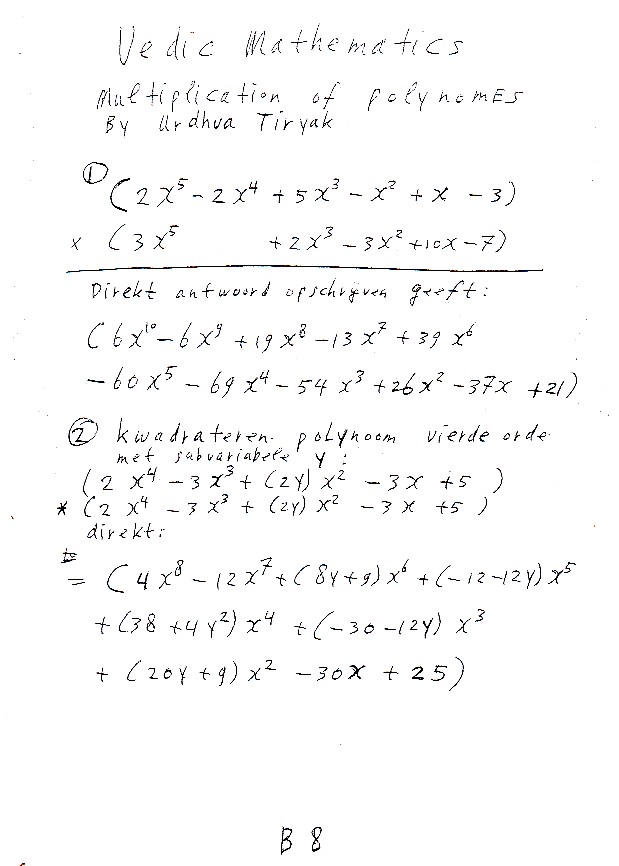 Vedic Mathematics
Multiplication of polynomEs
By Urdhva Tiryak
① (2x⁵ - 2x⁴ + 5x³ - x² + x - 3)
x (3x⁵ + 2x³ - 3x² + 10x - 7)
Direkt antwoord opschrijven geeft:
(6x¹⁰ - 6x⁹ + 19x⁸ - 13x⁷ + 39x⁶
- 60x⁵ - 69x⁴ - 54x³ + 26x² - 37x + 21)
② kwadrateren polynoom vierde orde
met subvariabele y:
(2x⁴ - 3x³ + (2y)x² - 3x + 5)
* (2x⁴ - 3x³ + (2y)x² - 3x + 5)
direkt:
= (4x⁸ - 12x⁷ + (8y+9)x⁶ + (-12-12y)x⁵
+ (38 + 4y²)x⁴ + (-30-12y)x³
+ (20y+9)x² - 30x + 25)
B 8